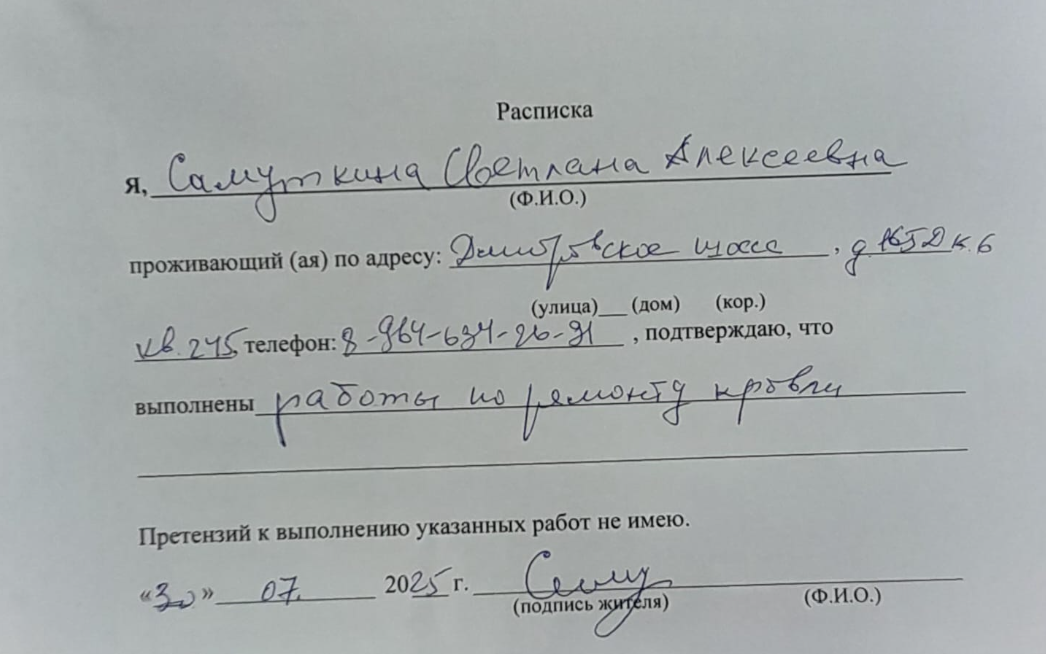 Расписка
Я, Самуткина Светлана Алексеевна
(Ф.И.О.)
проживающий (ая) по адресу: Дмитровское шоссе, д. 165Д к. 6
(улица)___ (дом) (кор.)
кв. 245 телефон: 8-964-634-26-91, подтверждаю, что
выполнены работы по ремонту кровли
Претензий к выполнению указанных работ не имею.
«30» 07. 2025 г.
(подпись жителя) (Ф.И.О.)